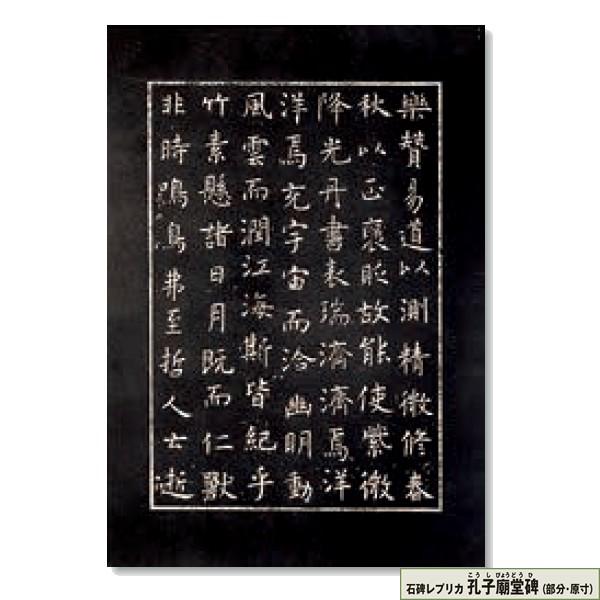 樂賛易道以測精微修春
秋以正襃貶故能使紫微
降光丹書表瑞濟濟焉洋
洋焉充宇宙而洽幽明動
風雲而潤江海斯皆紀乎
竹素懸諸日月既而仁獸
非時鳴鳥弗至哲人云逝
石碑レプリカ 孔子廟堂碑(こうしびょうどうひ)(部分・原寸)